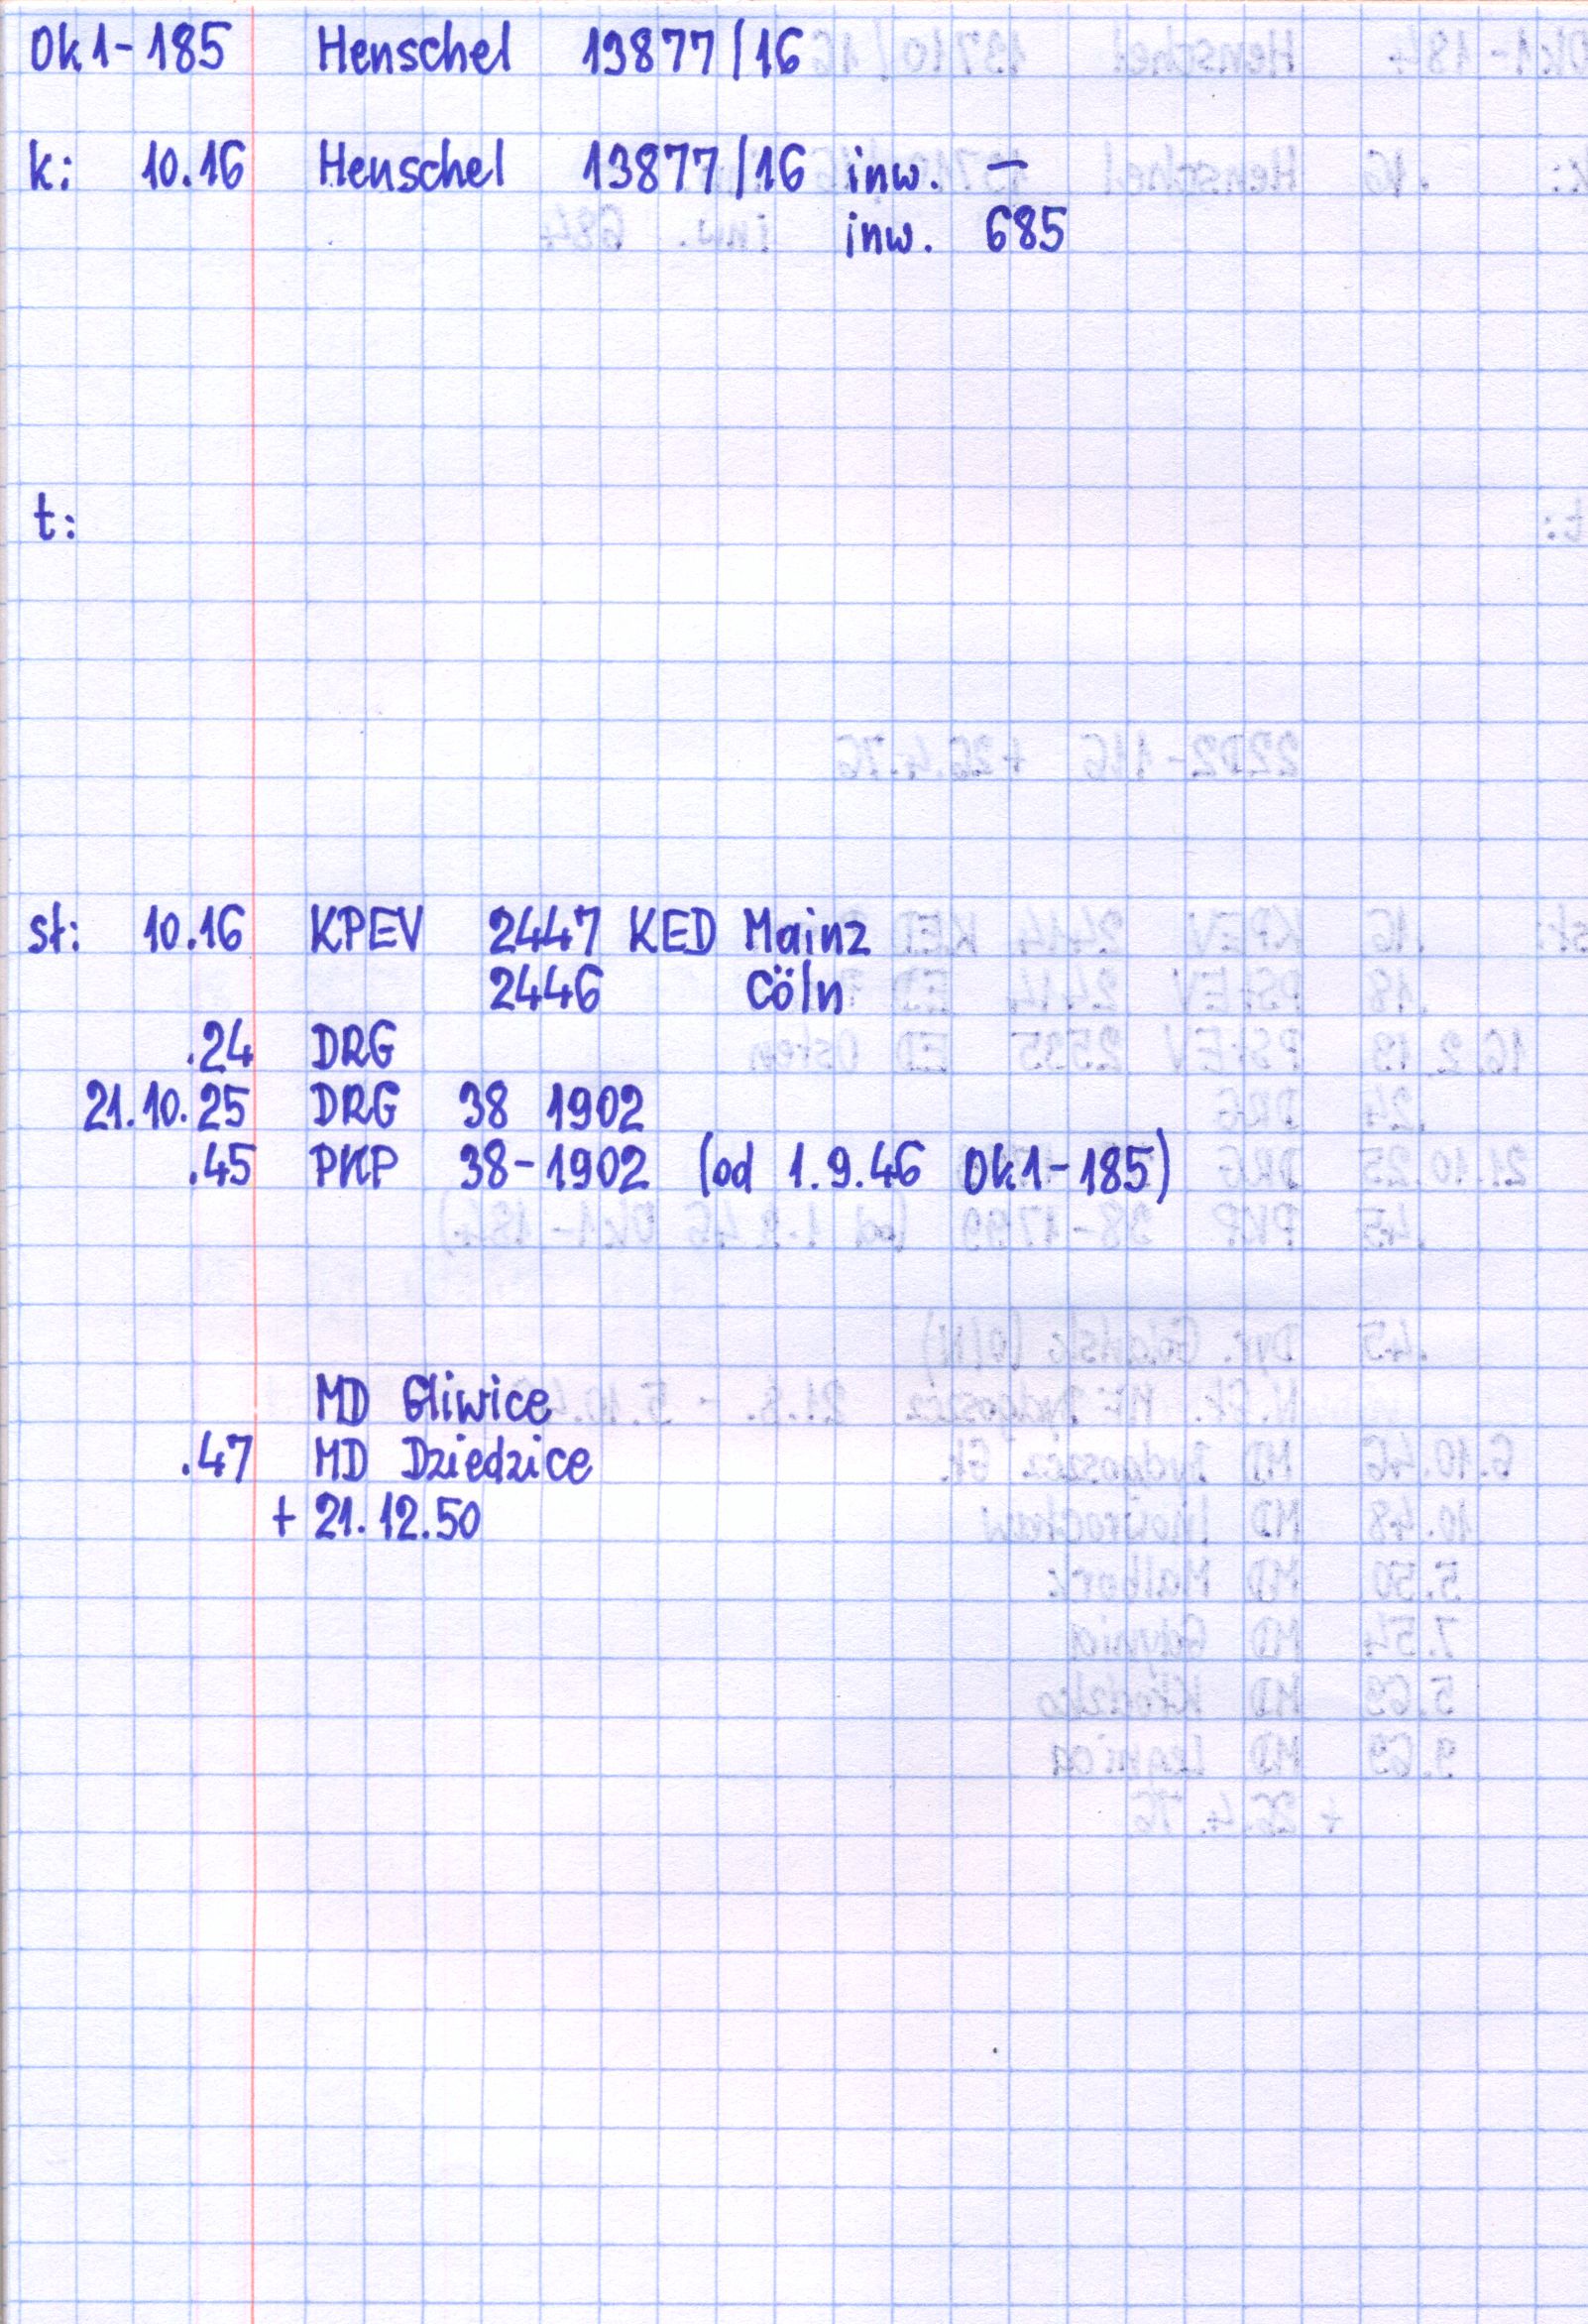 Ok1-185 Henschel 13877/16
k: 10.16 Henschel 13877/16 inw. —
inw. 685
t:
st: 10.16 KPEV 2447 KED Mainz
2446 Cöln
.24 DRG
21.10.25 DRG 38 1902
.45 PKP 38-1902 (od 1.9.46 Ok1-185)
MD Gliwice
.47 MD Dziedzice
+ 21.12.50